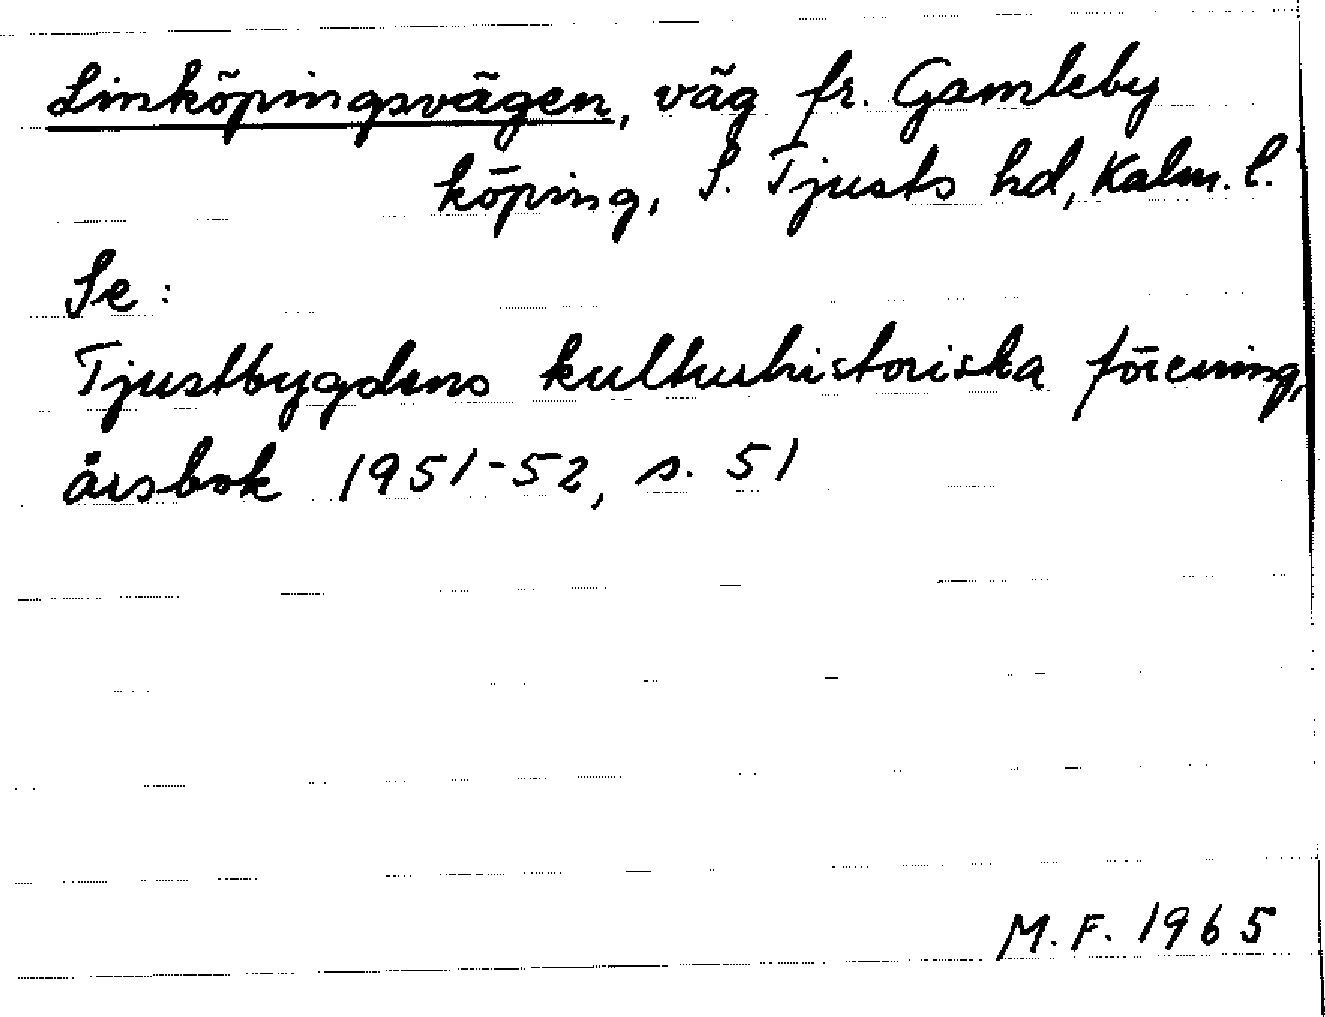 Linköpingsvägen, väg fr. Gamleby
köping, S. Tjusts hd, Kalm. l.
Se:
Tjustbygdens kulturhistoriska förening,
årsbok 1951-52, s. 51
M.F. 1965